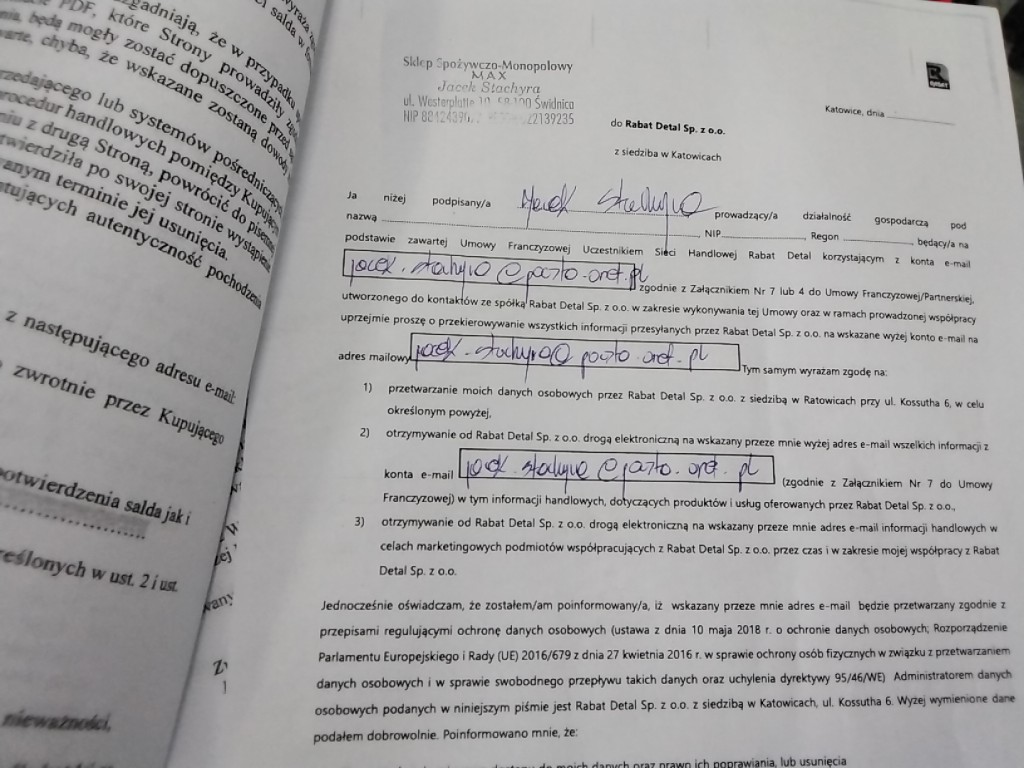 gadniają, że w przypadku
PDF, które Strony prowadziły
będą mogły zostać dopuszczone przed
chyba, że wskazane zostaną dowody
lub systemów pośredniczących
procedur handlowych pomiędzy Kupującym
z drugą Stroną, powrócić do
po swojej stronie wystąpienie
terminie jej usunięcia.
autentyczność pochodzenia
z następującego adresu e-mail:
zwrotnie przez Kupującego
potwierdzenia salda jak i
w ust. 2 i ust.
nieważności,
Sklep Spożywczo-Monopolowy
MAX
Jacek Stachyra
ul. Westerplatte Świdnica
NIP
Katowice, dnia
do Rabat Detal Sp. z o.o.
z siedziba w Katowicach
Ja niżej podpisany/a Jacek Stachyra prowadzący/a działalność gospodarczą pod
nazwą NIP, Regon, będący/a na
podstawie zawartej Umowy Franczyzowej Uczestnikiem Sieci Handlowej Rabat Detal korzystającym z konta e-mail
jacek.stachyra@poczta.onet.pl zgodnie z Załącznikiem Nr 7 lub 4 do Umowy Franczyzowej/Partnerskiej,
utworzonego do kontaktów ze spółką Rabat Detal Sp. z o.o. w zakresie wykonywania tej Umowy oraz w ramach prowadzonej współpracy
uprzejmie proszę o przekierowywanie wszystkich informacji przesyłanych przez Rabat Detal Sp. z o.o. na wskazane wyżej konto e-mail na
adres mailowy jacek.stachyra@poczta.onet.pl Tym samym wyrażam zgodę na:
1) przetwarzanie moich danych osobowych przez Rabat Detal Sp. z o.o. z siedzibą w Katowicach przy ul. Kossutha 6, w celu
określonym powyżej,
2) otrzymywanie od Rabat Detal Sp. z o.o. drogą elektroniczną na wskazany przeze mnie wyżej adres e-mail wszelkich informacji z
konta e-mail jacek.stachyra@poczta.onet.pl (zgodnie z Załącznikiem Nr 7 do Umowy
Franczyzowej) w tym informacji handlowych, dotyczących produktów i usług oferowanych przez Rabat Detal Sp. z o.o.,
3) otrzymywanie od Rabat Detal Sp. z o.o. drogą elektroniczną na wskazany przeze mnie adres e-mail informacji handlowych w
celach marketingowych podmiotów współpracujących z Rabat Detal Sp. z o.o. przez czas i w zakresie mojej współpracy z Rabat
Detal Sp. z o.o.
Jednocześnie oświadczam, że zostałem/am poinformowany/a, iż wskazany przeze mnie adres e-mail będzie przetwarzany zgodnie z
przepisami regulującymi ochronę danych osobowych (ustawa z dnia 10 maja 2018 r. o ochronie danych osobowych; Rozporządzenie
Parlamentu Europejskiego i Rady (UE) 2016/679 z dnia 27 kwietnia 2016 r. w sprawie ochrony osób fizycznych w związku z przetwarzaniem
danych osobowych i w sprawie swobodnego przepływu takich danych oraz uchylenia dyrektywy 95/46/WE) Administratorem danych
osobowych podanych w niniejszym piśmie jest Rabat Detal Sp. z o.o. z siedzibą w Katowicach, ul. Kossutha 6. Wyżej wymienione dane
podałem dobrowolnie. Poinformowano mnie, że:
do moich danych oraz prawo ich poprawiania, lub usunięcia